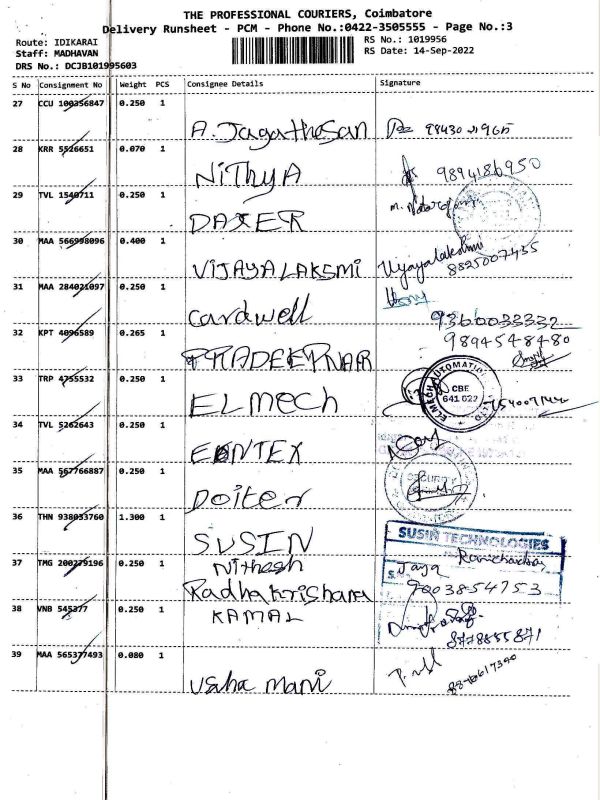 THE PROFESSIONAL COURIERS, Coimbatore
Delivery Runsheet - PCM - Phone No.:0422-3505555 - Page No.:3
Route: IDIKARAI
Staff: MADHAVAN
DRS No.: DCJB101995603
RS No.: 1019956
RS Date: 14-Sep-2022
S No Consignment No Weight PCS Consignee Details Signature
27 CCU 100356847 0.250 1
A. Jagathesan
28 KRR 5526651 0.070 1
NiThyA 9894186950
29 TVL 1540711 0.250 1
DAXER
30 MAA 566998096 0.400 1
VIJAYALAKSMI Vijayalakshmi
8825007435
31 MAA 284021097 0.250 1
cardwell 9360033332
32 KPT 4096589 0.265 1 9894548480
33 TRP 4755532 0.250 1
ELmech ELMECH AUTOMATION CBE 641 022
34 TVL 5262643 0.250 1
35 MAA 567766887 0.250 1
Doiter SECURITY
36 THN 938033760 1.300 1
SUSIN SUSIN TECHNOLOGIES
37 TMG 200279196 0.250 1 Nithesh
Jaya
Radha krishana 9003854753
38 VNB 545377 0.250 1 KAMAL
39 MAA 565377493 0.080 1
usha mani